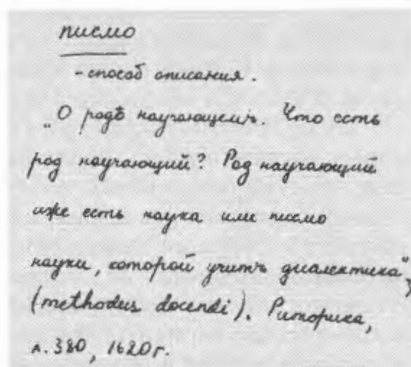 письмо
- способ описания.
„О родѣ научающемъ. Что есть
род научающий? Род научающий
иже есть наука или письмо
науки, которой учитъ диалектика“,
(methodus docendi). Риторика,
л. 380, 1620г.